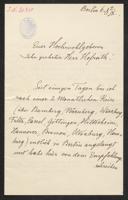 Berlin 6/5
Euer Hochwohlgeboren
Sehr geehrter Herr Hofrath!
Seit einigen Tagen bin ich
nach einer 2 Monatlichen Reise
über Bamberg, Nürnberg, Würzburg,
Fulda, Cassel, Göttingen, Hildesheim,
Hannover, Bremen, Oldenburg, Ham-
burg) endlich in Berlin angelangt
und habe hier von dem Empfehlungs-
schreiben